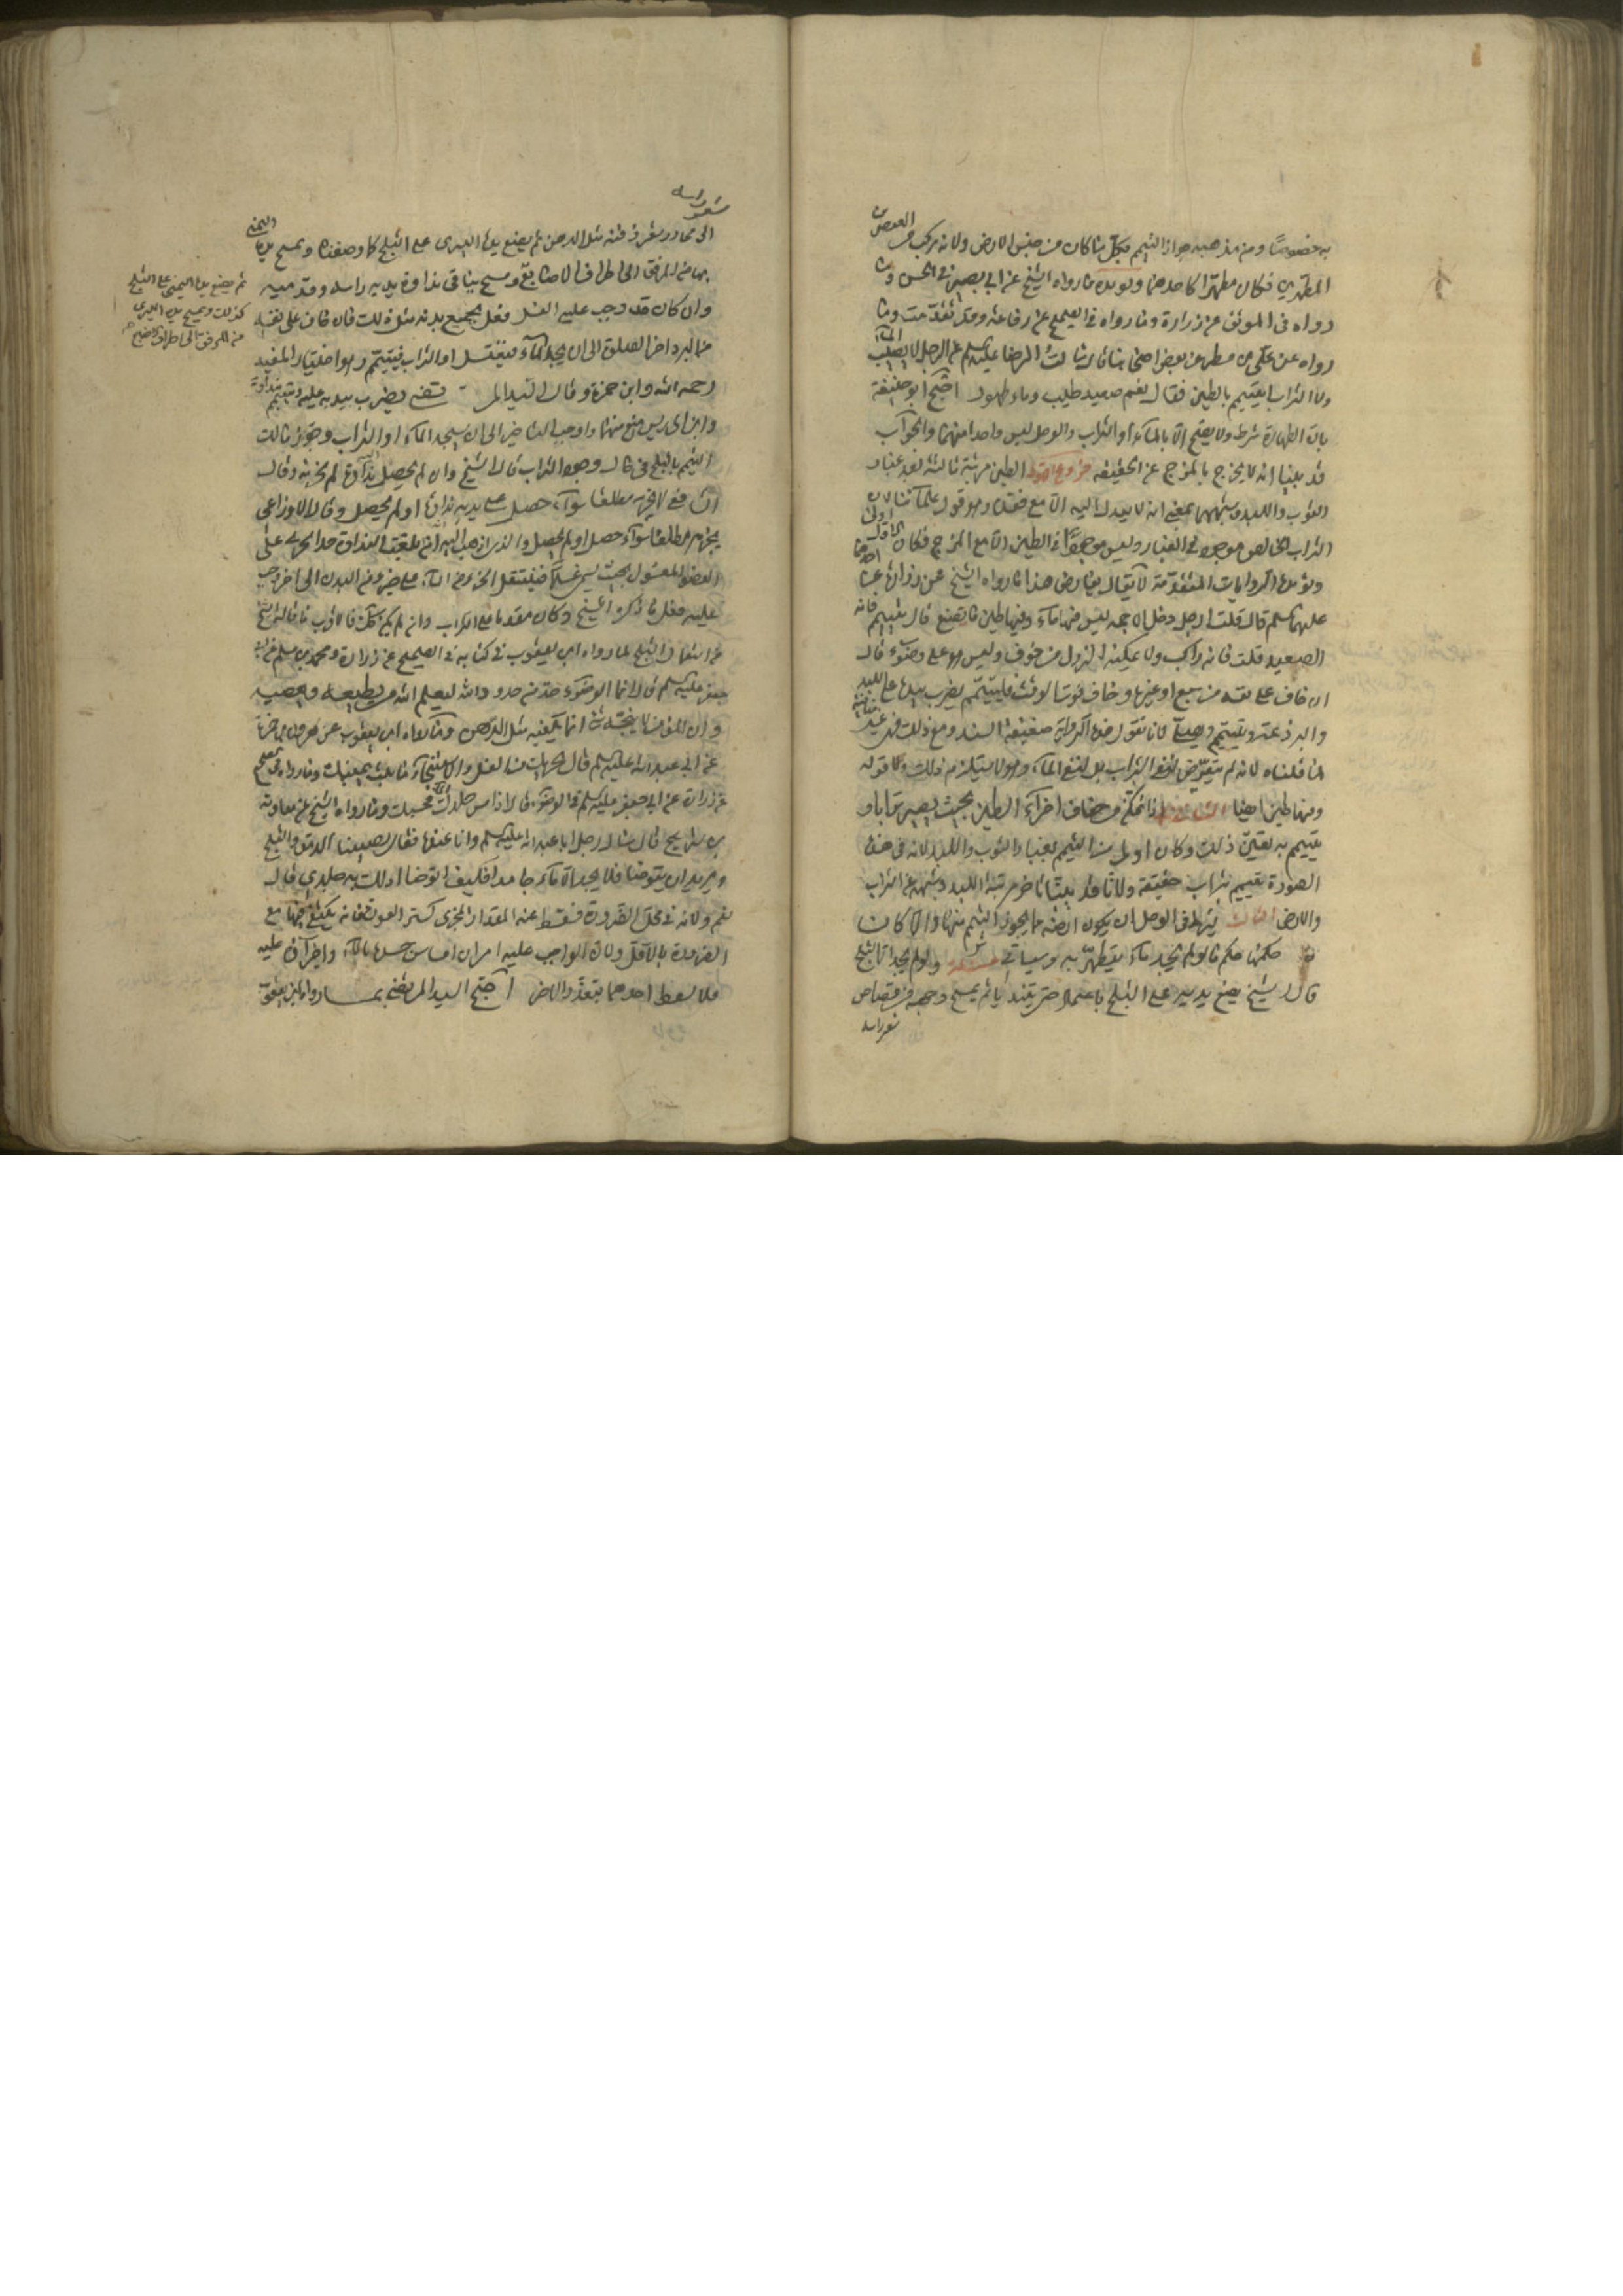 به خصوصا ومن مذهبه جواز التيمم بكل ما كان من جنس الارض ولانه مركب من العنصرين
المطهرين فكان مطهرا كاحدهما ويؤيده ما رواه الشيخ عن ابي بصير في الحسن وما
رواه في الموثق عن زرارة وما رواه في الصحيح عن رفاعة وقد تقدمت وما
رواه عن علي بن مطر عن بعض اصحابنا قال سالت الرضا عليه السلم عن الرجل لا يصيب الماء
ولا التراب ايتيمم بالطين فقال نعم صعيد طيب وماء طهور احتج ابو حنيفة
بان الطهارة شرط ولا يصح الا بالماء او التراب والوحل ليس واحدا منهما والجواب
قد بينا انه لا يخرج بالمزج عن الحقيقة فروع الاول الطين مرتبة ثالثة بعد غبار
الثوب واللبد وشبههما بمعنى انه لا يعدل اليه الا مع فقده وهو قول علمائنا لان
التراب الخالص موجود في الغبار وليس موجودا في الطين الا مع المزج فكان الاول اولى
ويؤيده الروايات المتقدمة لا يقال يعارض هذا ما رواه الشيخ عن زرارة عن احدهما
عليهما السلم قال قلت رجل دخل الاجمة ليس فيها ماء وفيها طين ما يصنع قال يتيمم فانه
الصعيد قلت فانه راكب ولا يمكنه النزول من خوف وليس هو على وضوء قال
ان خاف على نفسه من سبع او غيره وخاف فوت الوقت فليتيمم يضرب بيده على اللبد
والبرذعة ويتيمم ويصلي لانا نقول هذه الرواية ضعيفة السند ومع ذلك فهي غير منافية
لما قلناه لانه لم يتعرض لنفي التراب بل لنفي الماء وهو لا يستلزم ذلك وكذا قوله
وفيها طين ايضا الثاني اذا تمكن من جفاف اجزاء الطين بحيث يصير ترابا و
يتيمم به تعين ذلك وكان اولى من التيمم بغبار الثوب واللبد لانه في هذه
الصورة تيمم بتراب حقيقة ولانا قد بينا تاخر مرتبة اللبد وشبهه عن التراب
والارض الثالث يشترط في الوحل ان يكون ارضه مما يجوز التيمم منها والا كان
حكمها حكم ما لو لم يجد ماء يتطهر به وسياتي مسئلة ولو لم يجد الا الثلج
قال الشيخ يضع يديه على الثلج باعتماد حتى يتنديا ثم يمسح وجهه من قصاص
شعر راسه
شعر راسه
الى محادر شعر ذقنه مثل الدهن ثم يضع يده اليسرى على الثلج كما وصفناه ويمسح يده اليمنى
بها من المرفق الى اطراف الاصابع ويمسح بباقي نداوة يديه راسه وقدميه
وان كان قد وجب عليه الغسل فعل بجميع بدنه مثل ذلك فان خاف على نفسه
من البرد اخر الصلوة الى ان يجد الماء فيغتسل او التراب فيتيمم وهو اختيار المفيد
رحمه الله وابن حمزة وقال السيد المرتضى يضرب بيديه عليه ويتيمم بنداوته
وابن ادريس منع منهما واوجب التاخير الى ان يجد الماء او التراب وجوز مالك
التيمم بالثلج في حال وجود التراب قال الشيخ وان لم يحصل نداوة لم يجزيه وقال
الشافعي لا يجزيه مطلقا سواء حصل على يديه نداوة او لم يحصل وقال الاوزاعي
يجزيه مطلقا سواء حصل او لم يحصل والذي اذهب اليه انه ان بلغت النداوة حدا يجري على
العضو المغسول بحيث يسمى غسلا فينتقل الجزء من الماء على جزء من البدن الى اخر وجب
عليه فعل ما ذكره الشيخ وكان مقدما على التراب وان لم يكن كذلك فالاقرب ما قاله الشيخ
من استعمال الثلج لما رواه ابن يعقوب في كتابه في الصحيح عن زرارة ومحمد بن مسلم عن ابي
جعفر عليه السلم قال انما الوضوء حد من حدود الله ليعلم الله من يطيعه ومن يعصيه
وان المؤمن لا ينجسه شيء انما يكفيه مثل الدهن وما رواه ابن يعقوب عن هرون بن حمزة
عن ابي عبد الله عليه السلم قال يجزيك من الغسل والاستنجاء ما بلت يمينك وما رواه في الصحيح
عن زرارة عن ابي جعفر عليه السلم في الوضوء قال اذا مس جلدك الماء فحسبك وما رواه الشيخ عن معاوية
بن شريح قال سال رجل ابا عبد الله عليه السلم وانا عنده فقال يصيبنا الدمق والثلج
ونريد ان نتوضا فلا نجد الا ماء جامدا فكيف اتوضا ادلك به جلدي قال
نعم ولانه في محل الضرورة فسقط عنه المقدار المجزي كستر العورة فانه يكتفى فيها مع
الضرورة بالاقل ولان الواجب عليه امران امساس جسده بالماء واجراؤه عليه
فلا يسقط احدهما بتعذر الاخر احتج السيد المرتضى بما رواه ابن يعقوب
ثم يضع يده اليمنى على الثلج
كذلك ويمسح يده اليسرى
من المرفق الى اطراف الاصابع